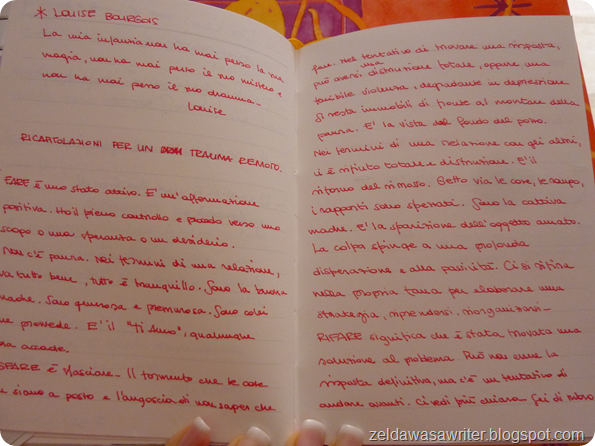 * LOUISE BOURGOIS
La mia infanzia non ha mai perso la sua
magia, non ha mai perso il suo mistero e
non ha mai perso il suo dramma-
Louise
RICAPITOLAZIONI PER UN TRAUMA REMOTO.
FARE è uno stato attivo. E' un'affermazione
positiva. Ho il pieno controllo e procedo verso uno
scopo o una speranza o un desiderio.
Non c'è paura. Nei termini di una relazione,
va tutto bene, tutto è tranquillo. Sono la buona
madre. Sono generosa e premurosa. Sono colei
che provvede. E' il "Ti Amo", qualunque
cosa accada.
DISFARE è sfasciare. Il tormento che le cose
siano a posto e l'angoscia di non saper che
fare. Nel tentativo di trovare una risposta,
può aversi una distruzione totale, oppure una
terribile violenza, degradante in depressione
Si resta immobili di fronte al montare della
paura. E' la vista del fondo del pozzo.
Nei termini di una relazione con gli altri,
vi è rifiuto totale e distruzione. E' il
ritorno del rimosso. Getto via le cose, le rompo,
i rapporti sono spezzati. Sono la cattiva
madre. E' la sparizione dell'oggetto amato.
La colpa spinge a una profonda
disperazione e alla passività. Ci si ritira
nella propria tana per elaborare una
strategia, riprendersi, riorganizzarsi-
RIFARE significa che è stata trovata una
soluzione al problema. Può non essere la
risposta definitiva, ma c'è un tentativo di
andare avanti. Ci vedi più chiaro. Sei di nuovo
zeldawasawriter.blogspot.com